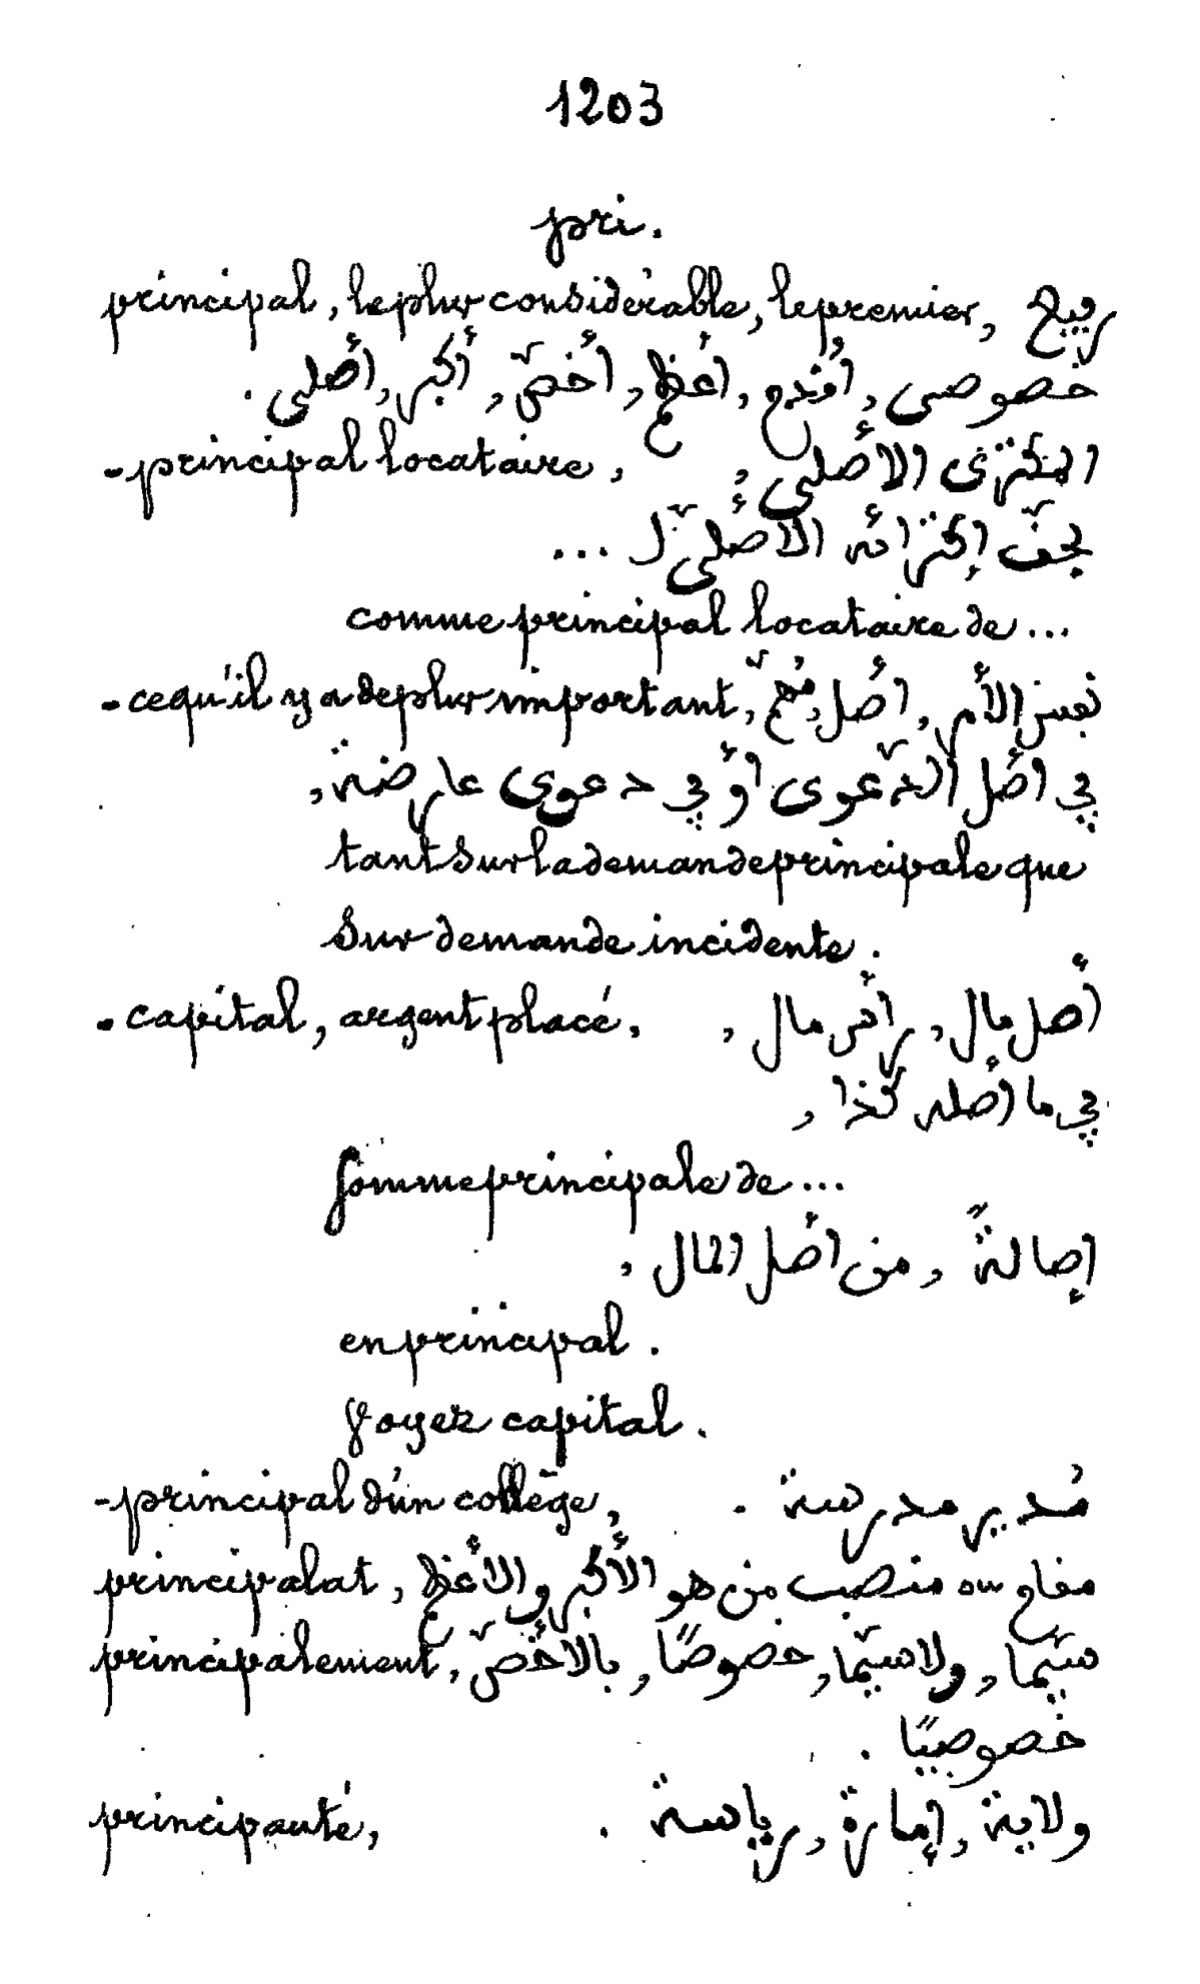 1203
pri.
principal, le plus considérable, le premier, رفيع
خصوصى, أقدم, أعظم, أخصّ, أكبر, أصلى.
- principal locataire, المكترى الأصلى,
بحقّ إكترائه الأصلىّ ل ...
comme principal locataire de ...
- ce qu'il y a de plus important, نفس الأمر, أصل, مُهمّ,
في أصل الدّعوى أو في دعوى عارضة,
tant sur la demande principale que
sur demande incidente.
- capital, argent placé, أصل مال, رأس مال,
في ما أصله كذا,
somme principale de ...
إصالةً, من أصل المال,
en principal.
Voyez capital.
- principal d'un collège, مُدير مدرسة.
principalat, مقام ou منصب من هو الأكبر والأعظم
principalement, سيّما, ولا سيّما, خصوصًا, بالأخصّ,
خصوصيًا.
principauté, ولاية, إمارة, رياسة.